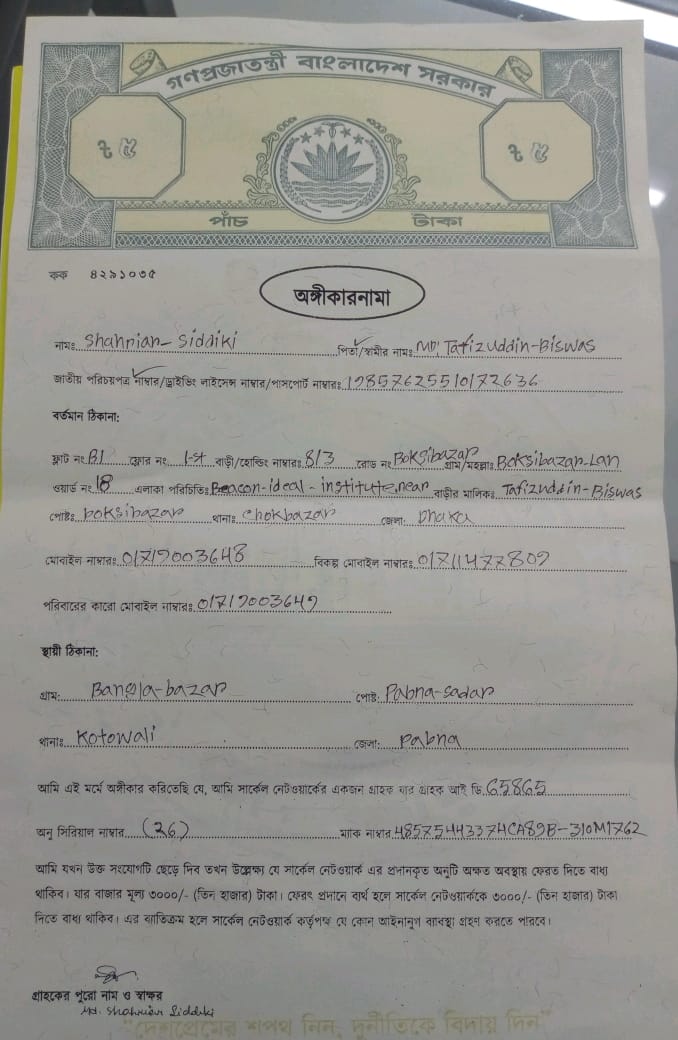 গণপ্রজাতন্ত্রী বাংলাদেশ সরকার
৳ ৫ ৳ ৫
পাঁচ টাকা
কক ৪২৯১০৩৫
অঙ্গীকারনামা
নামঃ Shahrian-Siddiki পিতা/স্বামীর নামঃ MD. Tafizuddin-Biswas
জাতীয় পরিচয়পত্র নাম্বার/ড্রাইভিং লাইসেন্স নাম্বার/পাসপোর্ট নাম্বারঃ 19857625510172636
বর্তমান ঠিকানা:
ফ্লাট নং B1 ফ্লোর নং 1-st বাড়ী/হোল্ডিং নাম্বারঃ 8/3 রোড নং Boksibazar গ্রাম/মহল্লাঃ Boksibazar-Lan
ওয়ার্ড নং 18 এলাকা পরিচিতিঃ Beacon-ideal-institute,near বাড়ীর মালিকঃ Tafizuddin-Biswas
পোষ্টঃ boksibazar থানাঃ Chokbazar জেলা: Dhaka
মোবাইল নাম্বারঃ 01719003648 বিকল্প মোবাইল নাম্বারঃ 01711477809
পরিবারের কারো মোবাইল নাম্বারঃ 01719003649
স্থায়ী ঠিকানা:
গ্রাম: Bangla-bazar পোষ্ট: Pabna-sadar
থানাঃ Kotowali জেলা: Pabna
আমি এই মর্মে অঙ্গীকার করিতেছি যে, আমি সার্কেল নেটওয়ার্কের একজন গ্রাহক যার গ্রাহক আই ডি 65865
অনু সিরিয়াল নাম্বার (26) ম্যাক নাম্বার 48575443374CA89B-310M1762
আমি যখন উক্ত সংযোগটি ছেড়ে দিব তখন উল্লেক্ষ্য যে সার্কেল নেটওয়ার্ক এর প্রদানকৃত অনুটি অক্ষত অবস্থায় ফেরত দিতে বাধ্য
থাকিব। যার বাজার মূল্য ৩০০০/- (তিন হাজার) টাকা। ফেরৎ প্রদানে ব্যর্থ হলে সার্কেল নেটওয়ার্ককে ৩০০০/- (তিন হাজার) টাকা
দিতে বাধ্য থাকিব। এর ব্যতিক্রম হলে সার্কেল নেটওয়ার্ক কর্তৃপক্ষ যে কোন আইনানুগ ব্যবস্থা গ্রহণ করতে পারবে।
গ্রাহকের পুরো নাম ও স্বাক্ষর
Md. Shahriar Siddiki
"দেশপ্রেমের শপথ নিন, দুর্নীতিকে বিদায় দিন"